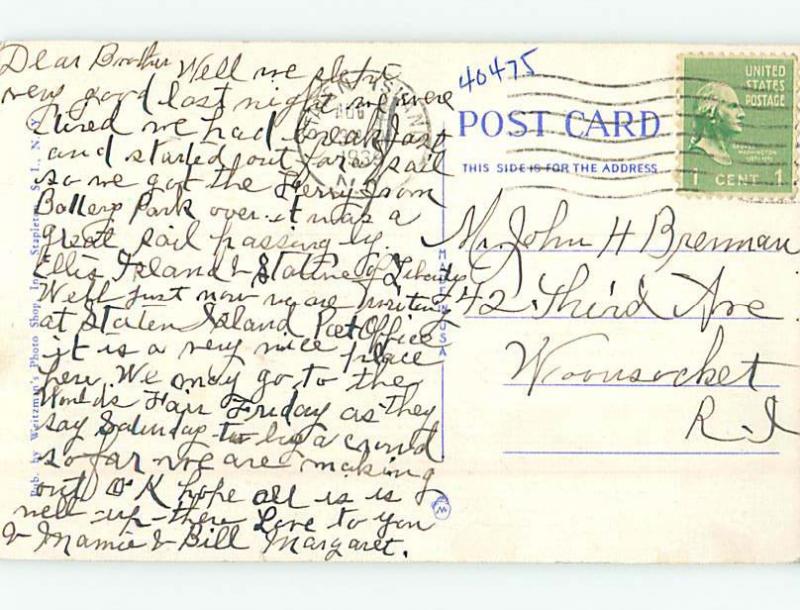 Dear Brother Well we slept
very good last night we were
tired we had breakfast
and started out for a sail
so we got the Ferry from
Battery Park over. it was a
great sail passing by.
Ellis Island & Statue of Liberty
Well just now we are writing
at Staten Island Post Office
it is a very nice place
here. We may go to the
Worlds Fair Friday as they
say Saturday to big a crowd
so far we are making
out O K hope all is is
well up there Love to you
& Mamie & Bill Margaret.
Pub. by Weitzman's Photo Shop, Inc., Stapleton, S. I., N. Y.
MADE IN USA
40475
POST CARD
THIS SIDE IS FOR THE ADDRESS
UNITED
STATES
POSTAGE
1 CENT 1
AUG
1939
Mr. John H Brennan
42 Third Ave
Woonsocket
R. I